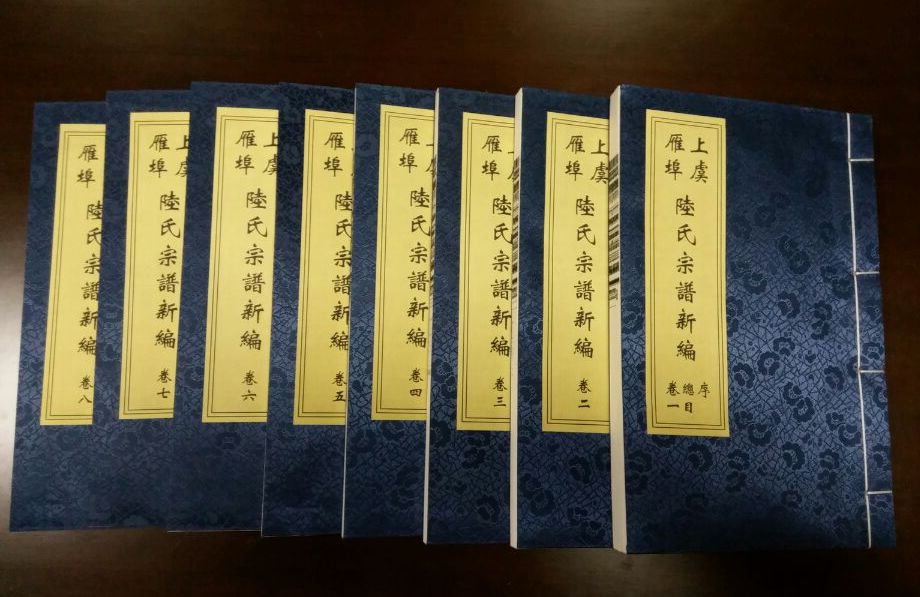 上虞
雁埠
陸氏宗譜新編
序
總目
卷一
上虞
雁埠
陸氏宗譜新編
卷二
上虞
雁埠
陸氏宗譜新編
卷三
上虞
雁埠
陸氏宗譜新編
卷四
上虞
雁埠
陸氏宗譜新編
卷五
上虞
雁埠
陸氏宗譜新編
卷六
上虞
雁埠
陸氏宗譜新編
卷七
雁埠
陸氏宗譜新編
卷八